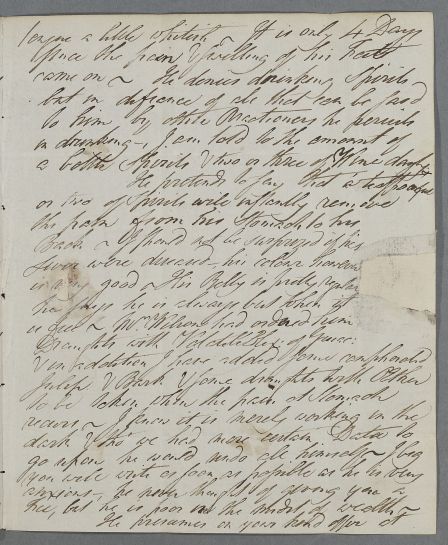 tongue a little whitish ~ It is only 4 Days
since the pain & swelling of his Feet
came on ~ He denies drinking Spirits
but in defiance of all that can be said
to him by other Practioners he persists
in drinking – I am told to the amount of
a bottle Spirits & two or three of Wine
He pretends to say that a
or two of Spirits will instantly remove
the pain from his Stomach to his
Back ~ I should not be surprized if his
Liver were diseased – his colour however
is good ~ His Belly is pretty regular
he says he is always but
is ~ Mr Wilson had ordered him
Draughts with of
& in addition I have added some camphorated
Julep & Bark & some draughts with Ether
to be taken when the pain at Stomach
recurs ~ I know it is merely working in the
dark & tho' we had more certain Data to
go upon he would undo all himself ~ I beg
you will write as soon as possible as he is very
anxious – he never thought of giving you a
Fee, but he is poor in the midst of wealth ~
He presumes on your kind offer at